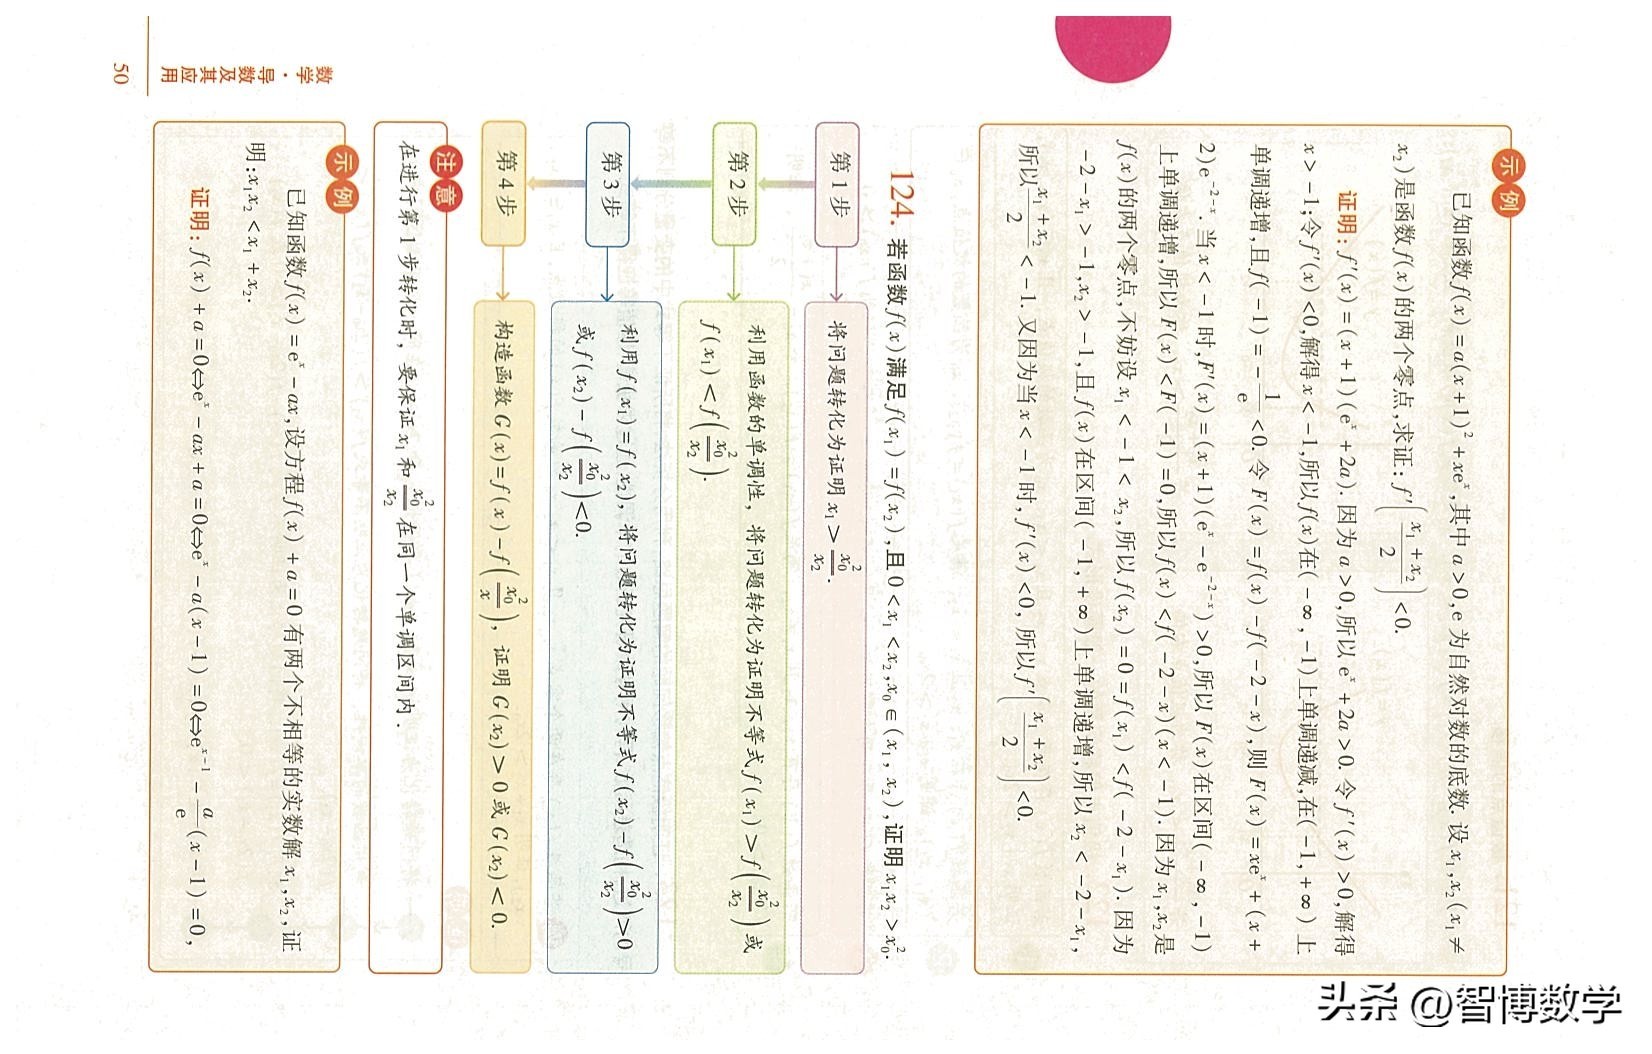 示例
已知函数f(x)=a(x+1)²+xeˣ,其中a>0,e为自然对数的底数.设x₁,x₂(x₁≠
x₂)是函数f(x)的两个零点,求证:f′((x₁+x₂)/2)<0.
证明:f′(x)=(x+1)(eˣ+2a).因为a>0,所以eˣ+2a>0.令f′(x)>0,解得
x>-1;令f′(x)<0,解得x<-1,所以f(x)在(-∞,-1)上单调递减,在(-1,+∞)上
单调递增,且f(-1)=-1/e<0.令F(x)=f(x)-f(-2-x),则F(x)=xeˣ+(x+
2)e⁻²⁻ˣ.当x<-1时,F′(x)=(x+1)(eˣ-e⁻²⁻ˣ)>0,所以F(x)在区间(-∞,-1)
上单调递增,所以F(x)<F(-1)=0,所以f(x)<f(-2-x)(x<-1).因为x₁,x₂是
f(x)的两个零点,不妨设x₁<-1<x₂,所以f(x₂)=0=f(x₁)<f(-2-x₁).因为
-2-x₁>-1,x₂>-1,且f(x)在区间(-1,+∞)上单调递增,所以x₂<-2-x₁,
所以(x₁+x₂)/2<-1.又因为当x<-1时,f′(x)<0,所以f′((x₁+x₂)/2)<0.
124.若函数f(x)满足f(x₁)=f(x₂),且0<x₁<x₂,x₀∈(x₁,x₂),证明x₁x₂>x₀².
第1步
将问题转化为证明x₁>x₀²/x₂.
第2步
利用函数的单调性,将问题转化为证明不等式f(x₁)>f(x₀²/x₂)或
f(x₁)<f(x₀²/x₂).
第3步
利用f(x₁)=f(x₂),将问题转化为证明不等式f(x₂)-f(x₀²/x₂)>0
或f(x₂)-f(x₀²/x₂)<0.
第4步
构造函数G(x)=f(x)-f(x₀²/x),证明G(x₂)>0或G(x₂)<0.
注意
在进行第1步转化时,要保证x₁和x₀²/x₂在同一个单调区间内.
示例
已知函数f(x)=eˣ-ax,设方程f(x)+a=0有两个不相等的实数解x₁,x₂,证
明:x₁x₂<x₁+x₂.
证明:f(x)+a=0⇔eˣ-ax+a=0⇔eˣ-a(x-1)=0⇔eˣ⁻¹-a/e(x-1)=0,
数学·导数及其应用
50
头条 @智博数学